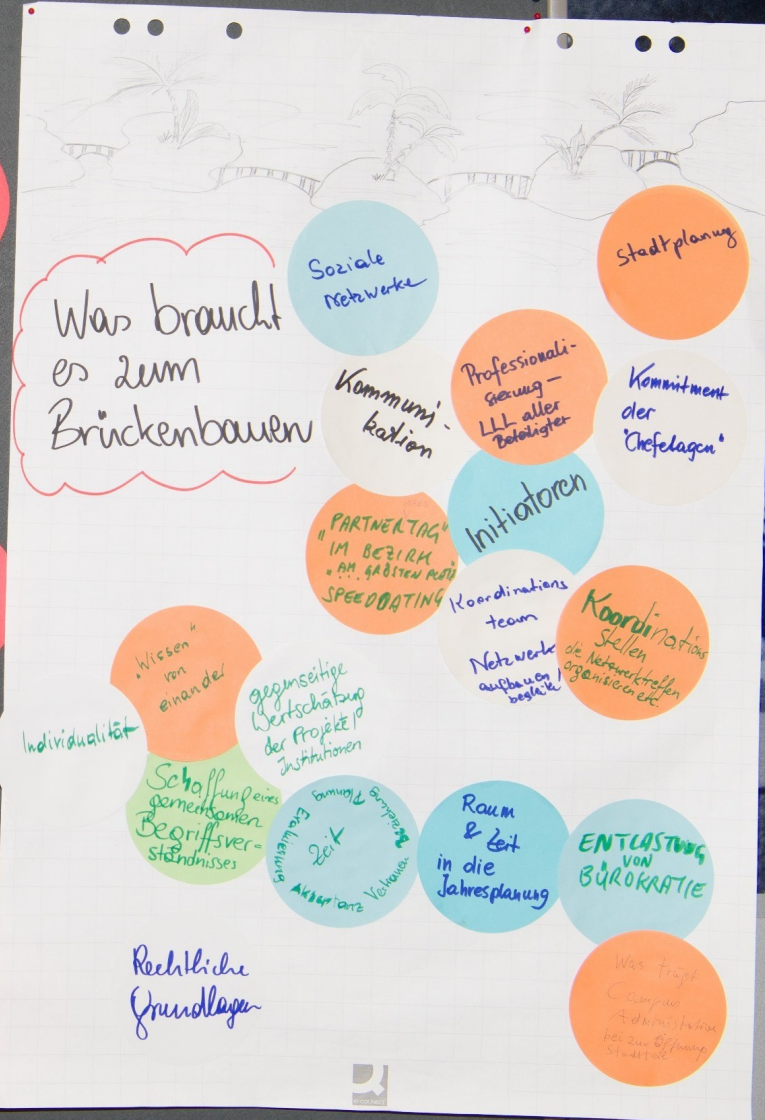 Was braucht
es zum
Brückenbauen
Soziale
Netzwerke
Stadtplanung
Kommuni-
kation
Professionali-
sierung –
LLL aller
Beteiligter
Kommitment
der
"Chefetagen"
Initiatoren
"PARTNERTAG"
IM BEZIRK
SPEEDDATING
Koordinations
team
Netzwerk
aufbauen /
Koordinations
stellen
die Netzwerktreffen
organisieren etc.
"Wissen"
von
einander
Individualität
gegenseitige
Wertschätzung
der Projekte/
Institutionen
Schaffung eines
gemeinsamen
Begriffsver-
ständnisses
Zeit
Planung
Beziehung
Vertrauen
Akzeptanz
Evaluierung
Raum
& Zeit
in die
Jahresplanung
ENTLASTUNG
VON
BÜROKRATIE
Rechtliche
Grundlagen
Was trägt
Campus
Administration
bei zur Öffnung
Stadtteil